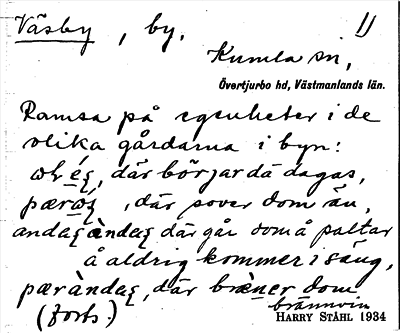 Väsby, by. 1)
Kumla sn,
Övertjurbo hd, Västmanlands län.
Ramsa på egenheter i de
olika gårdarna i byn:
där börjar dä dagas,
där sover dom än,
där går dom å paltar
å aldrig kommer i säng,
där bræner dom
brännvin
(forts.)
HARRY STÅHL 1934